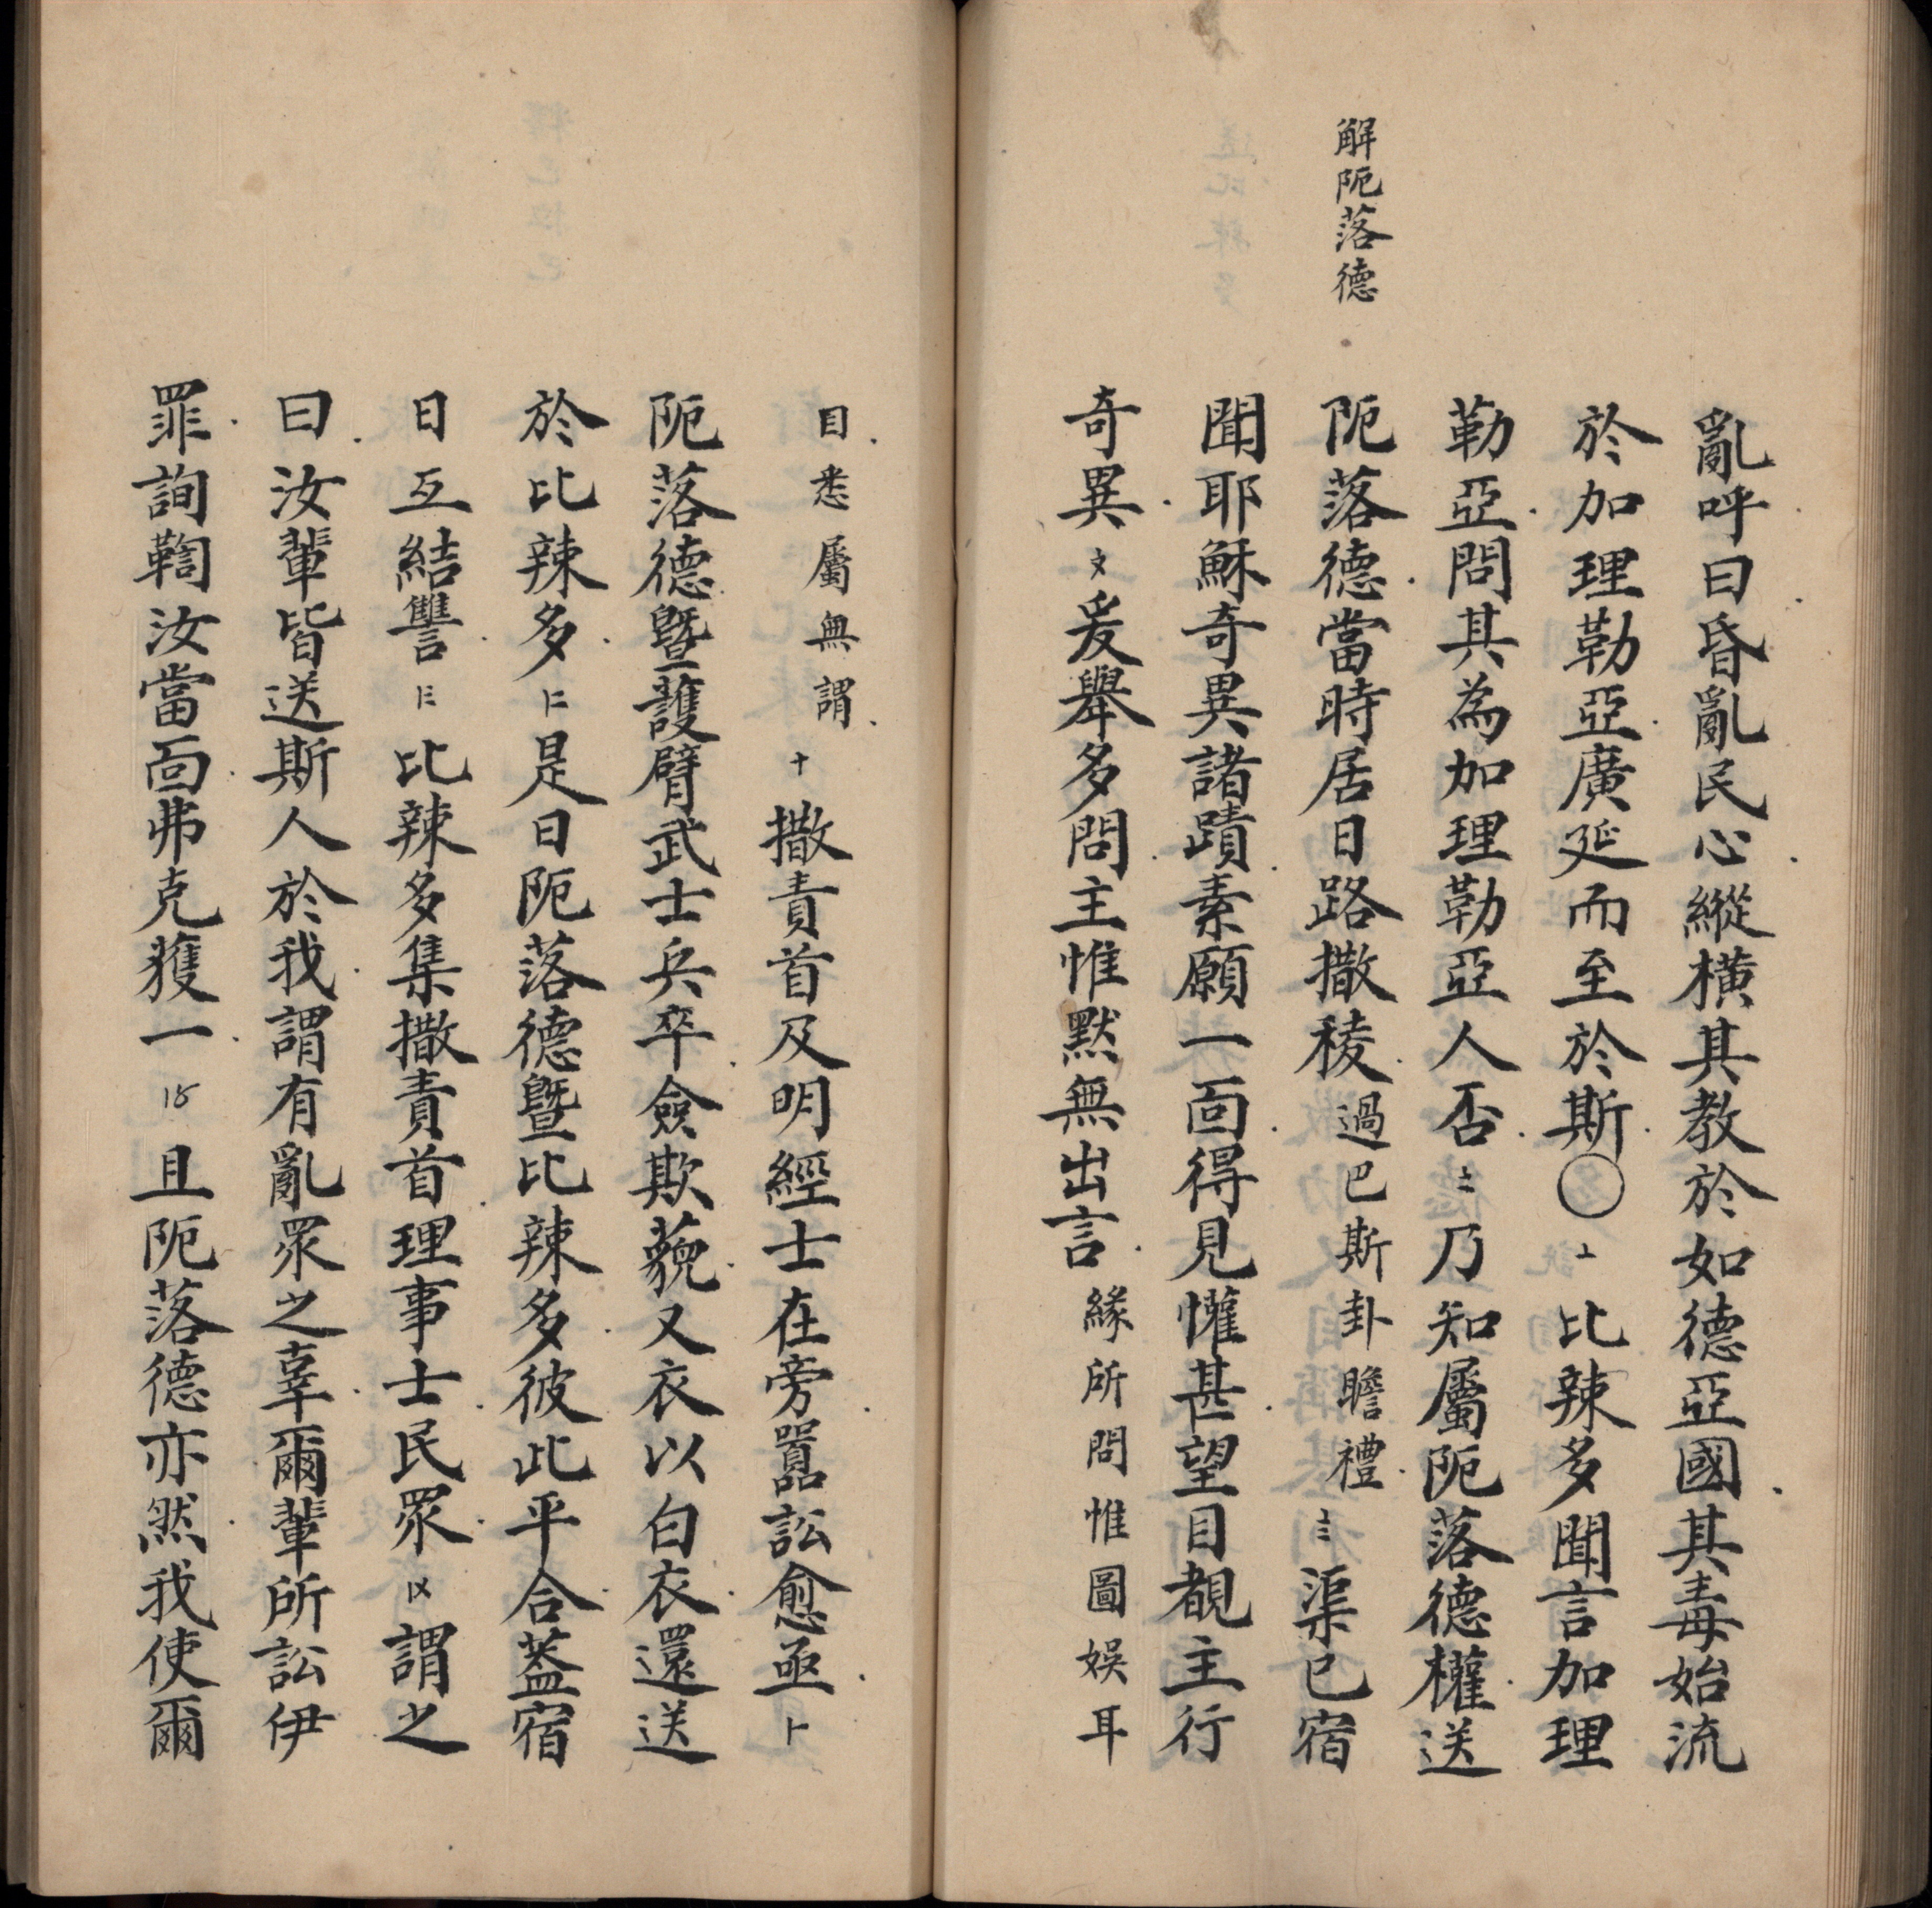 亂呼曰昏亂民心縱橫其教於如德亞國其毒始流
於加理勒亞廣延而至於斯〇⊥比辣多聞言加理
勒亞問其為加理勒亞人否〧乃知屬阨落德權送
解阨落德
阨落德當時居日路撒稜過巴斯卦瞻禮〨渠已宿
聞耶穌奇異諸蹟素願一面得見懽甚望目覩主行
奇異〩爰舉多問主惟默無出言緣所問惟圖娛耳
目悉屬無謂十撒責首及明經士在旁嚚訟愈亟
阨落德暨護臂武士兵卒僉欺藐又衣以白衣還送
於比辣多是日阨落德暨比辣多彼此平合蓋宿
日互結讐比辣多集撒責首理事士民眾謂之
曰汝輩皆送斯人於我謂有亂眾之辜爾輩所訟伊
罪詢鞫汝當面弗克蒦一且阨落德亦然我使爾